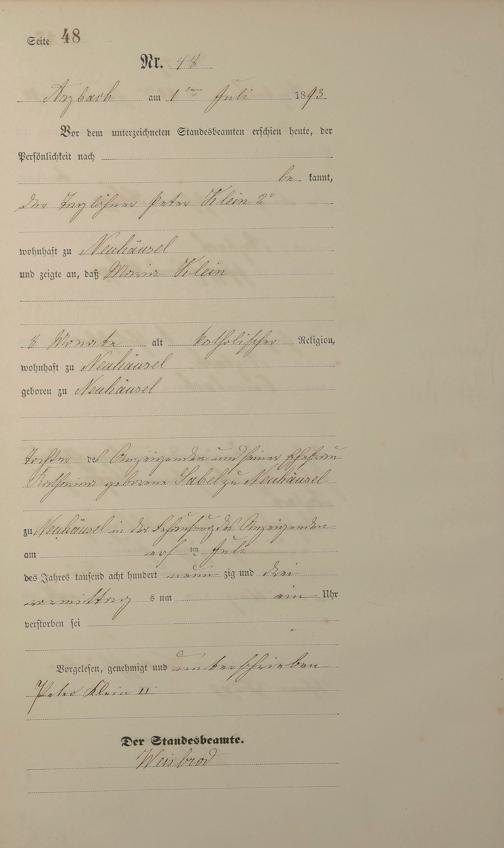 Seite 48
Nr. 48
Arzbach am 1ten Juli 1893
Vor dem unterzeichneten Standesbeamten erschien heute, der
Persönlichkeit nach
be kannt,
der Taglöhner Peter Klein 2r
wohnhaft zu Neuhäusel
und zeigte an, daß Maria Klein
8 Monate alt katholischer Religion,
wohnhaft zu Neuhäusel
geboren zu Neuhäusel
Tochter des Anzeigenden und seiner Ehefrau
Katharina geborene Sabel zu Neuhäusel
zu Neuhäusel in der Behausung des Anzeigenden
am ersten Juli
des Jahres tausend acht hundert neun zig und drei
vormittag s um ein Uhr
verstorben sei
Vorgelesen, genehmigt und unterschrieben
Peter Klein II
Der Standesbeamte.
Weisbrod